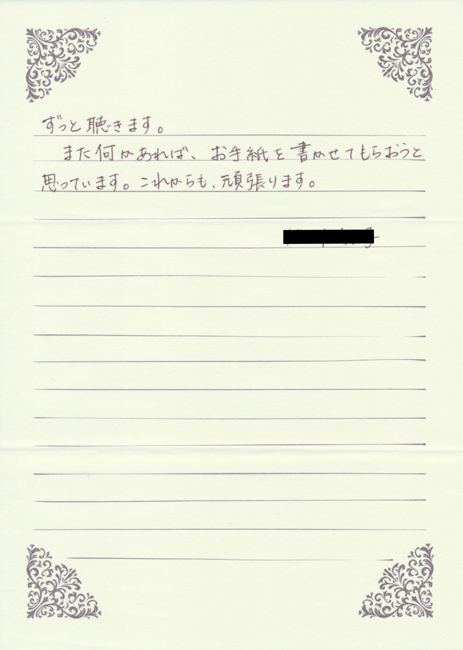 ずっと聴きます。
また何かあれば、お手紙を書かせてもらおうと
思っています。これからも、頑張ります。